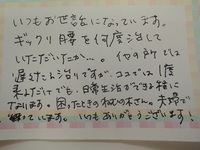 いつもお世話になっています。
ギックリ腰を何度治して
いただいたか…。他の所では
遅けたら治りですが、ココでは1度
来ただけでも、日常生活ができる様に
なります。困ったときの枕の木さん。夫婦で
頼っています。いつもありがとうございます！